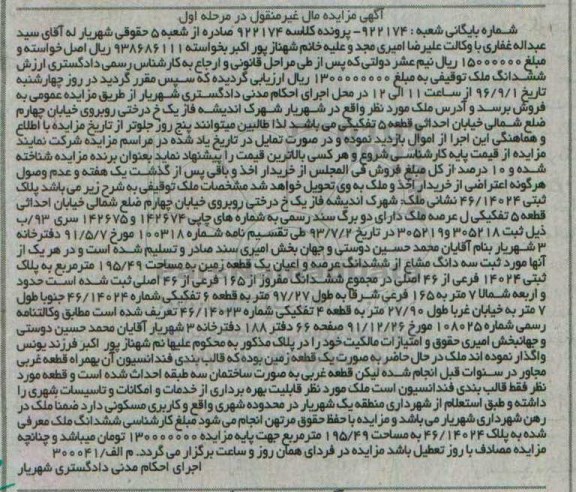 آگهی مزایده مال غیرمنقول در مرحله اول
شماره بایگانی شعبه : ۹۲۲۱۷۴- پرونده کلاسه ۹۲۲۱۷۴ صادره از شعبه ۵ حقوقی شهریار له آقای سید
عبداله غفاری با وکالت علیرضا امیری مجد و علیه خانم شهناز پور اکبر بخواسته ۹۳۸۶۸۶۱۱۱ ریال اصل خواسته و
مبلغ ۱۵۰۰۰۰۰۰ ریال نیم عشر دولتی که پس از طی مراحل قانونی و ارجاع به کارشناس رسمی دادگستری ارزش
ششدانگ ملک توقیفی به مبلغ ۱۳۰۰۰۰۰۰۰۰ ریال ارزیابی گردیده که سپس مقرر گردید در روز چهارشنبه
تاریخ ۹۶/۹/۱ از ساعت ۱۱ الی ۱۲ در محل اجرای احکام مدنی دادگستری شهریار از طریق مزایده عمومی به
فروش برسد و آدرس ملک مورد نظر واقع در شهریار شهرک اندیشه فاز یک خ درختی روبروی خیابان چهارم
ضلع شمالی خیابان احداثی قطعه ۵ تفکیکی می باشد. لذا طالبین میتوانند پنج روز جلوتر از تاریخ مزایده با اطلاع
و هماهنگی این اجرا از اموال بازدید نموده و در صورت تمایل در تاریخ یاد شده در مراسم مزایده شرکت نمایند
مزایده از قیمت پایه کارشناسی شروع و هر کسی بالاترین قیمت را پیشنهاد نماید بعنوان برنده مزایده شناخته
شده و ۱۰ درصد از کل مبلغ فروش فی المجلس از خریدار اخذ و باقی پس از گذشت یک هفته و عدم وصول
هرگونه اعتراضی از خریدار اخذ و ملک به وی تحویل خواهد شد مشخصات ملک توقیفی به شرح زیر می باشد پلاک
ثبتی ۴۶/۱۴۰۲۴ نشانی ملک: شهرک اندیشه فاز یک خ درختی روبروی خیابان چهارم ضلع شمالی خیابان احداثی
قطعه ۵ تفکیکی ل عرصه ملک دارای دو برگ سند رسمی به شماره های چاپی ۱۴۲۶۷۴ و ۱۴۲۶۷۵ سری ۹۳/ب
ذیل ثبت ۳۰۵۲۱۸ و ۳۰۵۲۱۹ در تاریخ ۹۳/۷/۲ طی تقسیم نامه شماره ۱۰۰۳۱۸ مورخ ۹۱/۵/۷ دفترخانه
۳ شهریار بنام آقایان محمد حسین دوستی و جهان بخش امیری سند صادر و تسلیم شده است و در هر یک از
آنها مورد ثبت سه دانگ مشاع از ششدانگ عرصه و اعیان یک قطعه زمین به مساحت ۱۹۵/۴۹ مترمربع به پلاک
ثبتی ۱۴۰۲۴ فرعی از ۴۶ اصلی در مجموع ششدانگ مفروز از ۱۶۵ فرعی از ۴۶ اصلی ثبت شده است حدود
و اربعه شمالا ۷ متر به ۱۶۵ فرعی شرقا به طول ۹۷/۲۷ متر به قطعه ۶ تفکیکی شماره ۴۶/۱۴۰۲۴ جنوبا طول
۷ متر به خیابان غربا طول ۲۷/۹۰ متر به قطعه ۴ تفکیکی شماره ۴۶/۱۴۰۲۳ تعریف شده است مطابق وکالتنامه
رسمی شماره ۱۰۸۰۲۵ مورخ ۹۱/۱۲/۲۶ صفحه ۶۶ دفتر ۱۸۸ دفترخانه ۳ شهریار آقایان محمد حسین دوستی
و جهانبخش امیری حقوق و امتیازات مالکیت خود را در پلاک مذکور به محکوم علیها نم شهناز پور اکبر فرزند یونس
واگذار نموده اند ملک در حال حاضر به صورت یک قطعه زمین بوده که قالب بندی فنداسیون آن بهمراه قطعه غربی
مجاور در سنوات قبل انجام شده لیکن قطعه غربی به صورت ساختمان سه طبقه احداث شده است و قطعه مورد
نظر فقط قالب بندی فنداسیون است ملک مورد نظر قابلیت بهره برداری از خدمات و امکانات و تاسیسات شهری را
داشته و طبق استعلام از شهرداری منطقه یک شهریار در محدوده شهری واقع و کاربری مسکونی دارد ضمنا ملک در
رهن شهرداری شهریار می باشد و مزایده با حفظ حقوق مرتهن انجام می شود مبلغ کارشناسی ششدانگ ملک معرفی
شده به پلاک ۴۶/۱۴۰۲۴ به مساحت ۱۹۵/۴۹ مترمربع جهت پایه مزایده ۱۳۰۰۰۰۰۰۰ تومان میباشد و چنانچه
مزایده مصادف با روز تعطیل باشد مزایده در فردای همان روز و ساعت برگزار می گردد. م الف/۳۰۰۰۴۱
اجرای احکام مدنی دادگستری شهریار